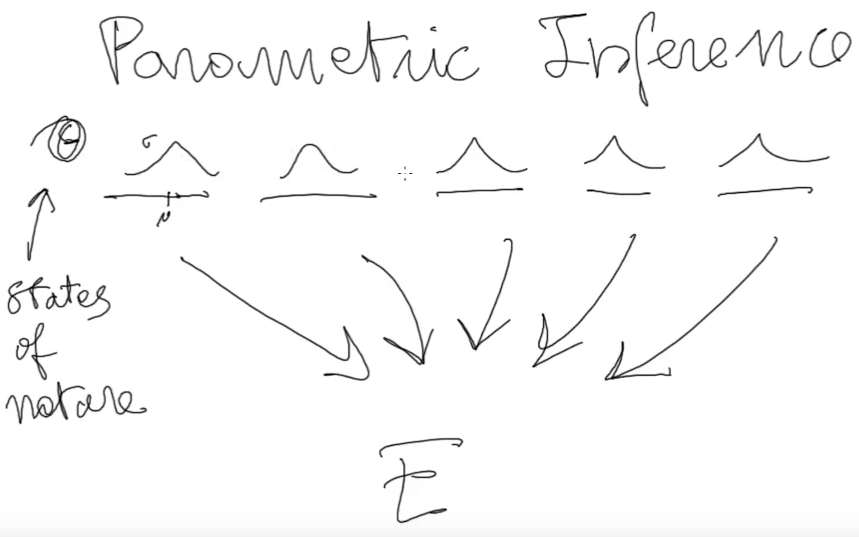 Parametric Inference
Θ
σ
μ
states
of
nature
E